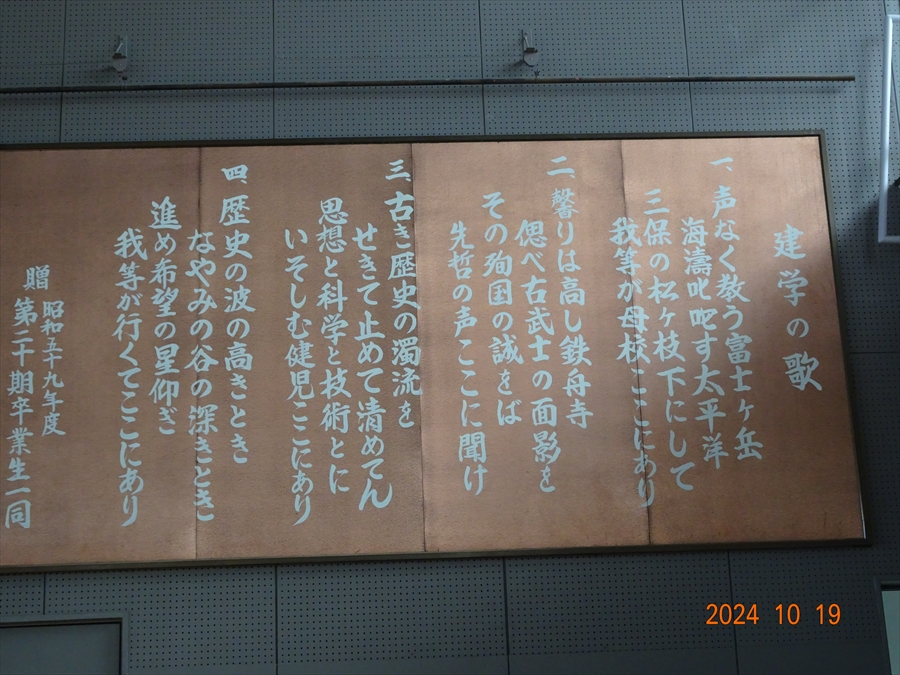 建学の歌
一、声なく教う富士ヶ岳
海濤叱咤す太平洋
三保の松ヶ枝下にして
我等が母校ここにあり
二、馨りは高し鉄舟寺
偲べ古武士の面影を
その殉国の誠をば
先哲の声ここに聞け
三、古き歴史の濁流を
せきて止めて清めてん
思想と科学と技術とに
いそしむ健児ここにあり
四、歴史の波の高きとき
なやみの谷の深きとき
進め希望の星仰ぎ
我等が行くてここにあり
贈 昭和五十九年度
第二十期卒業生一同
2024 10 19